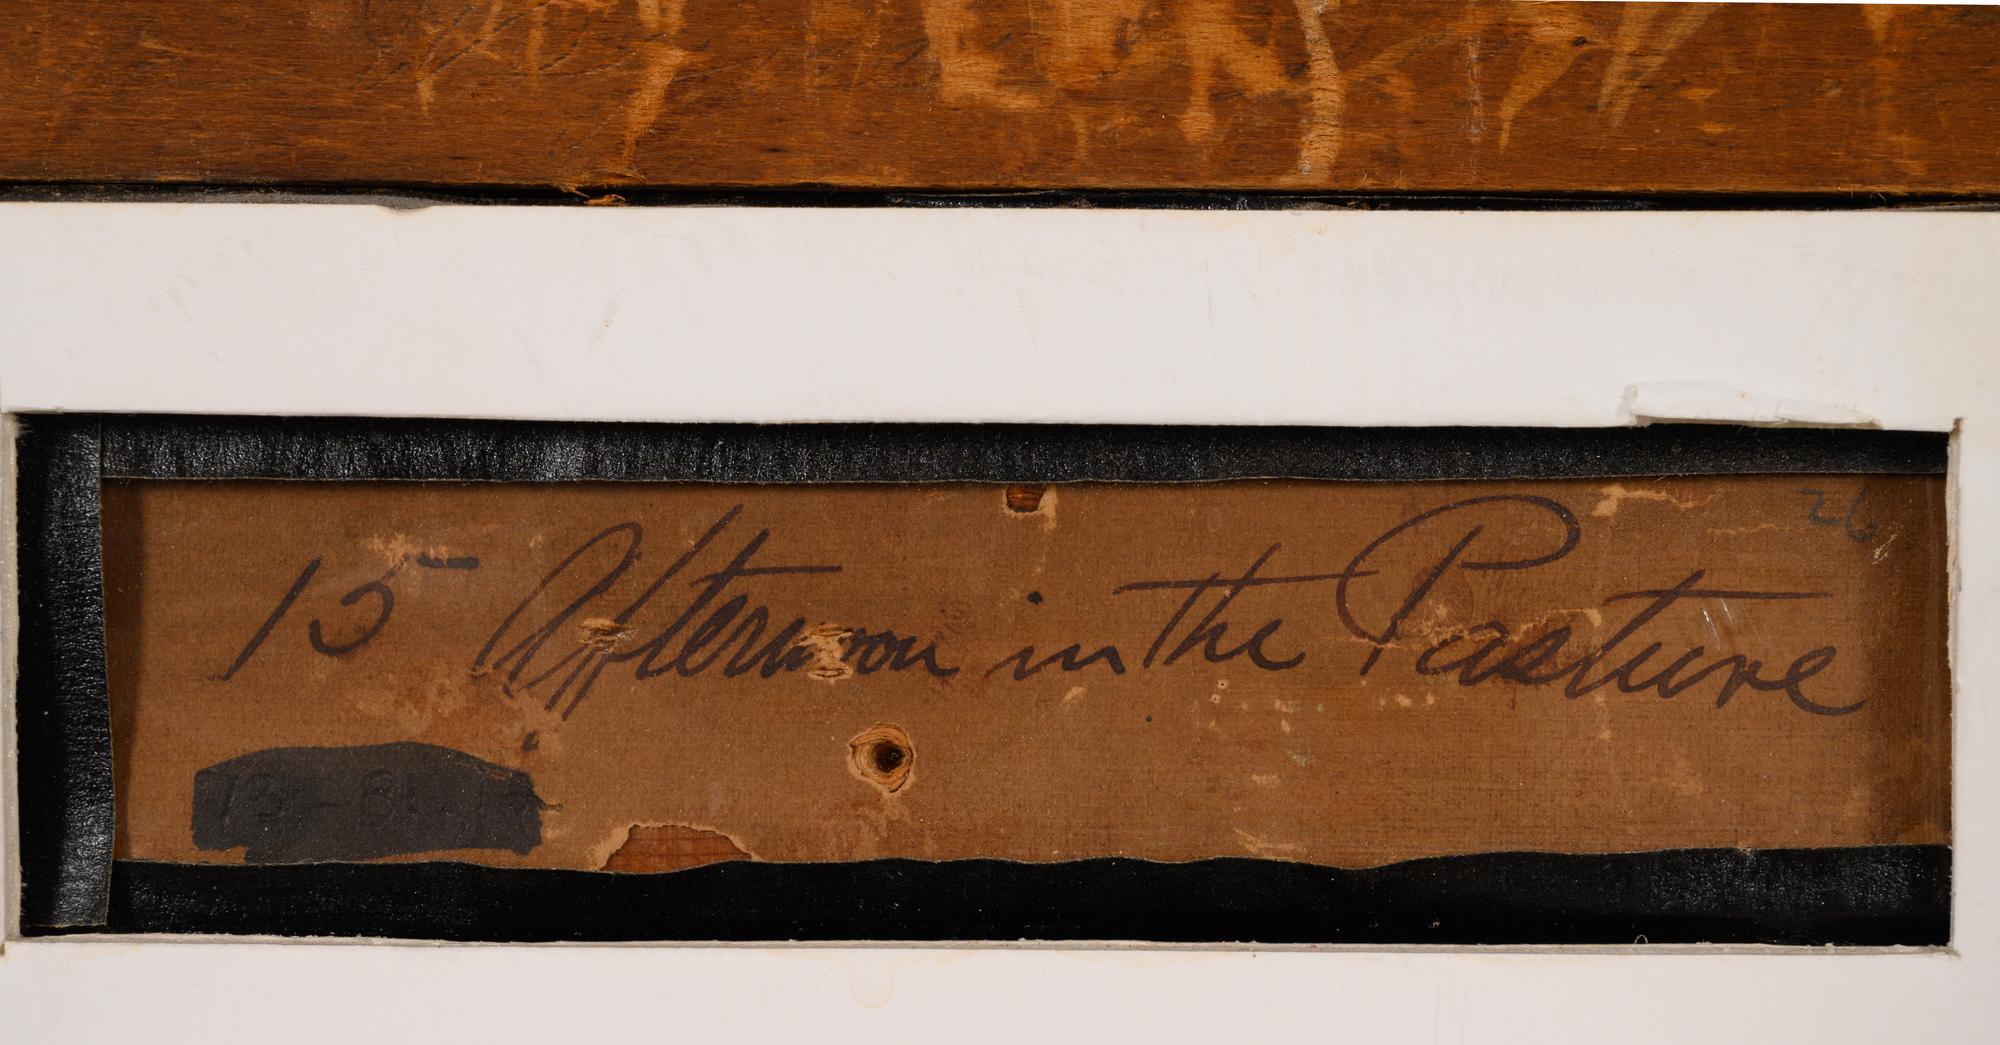 26
15 Afternoon in the Pasture